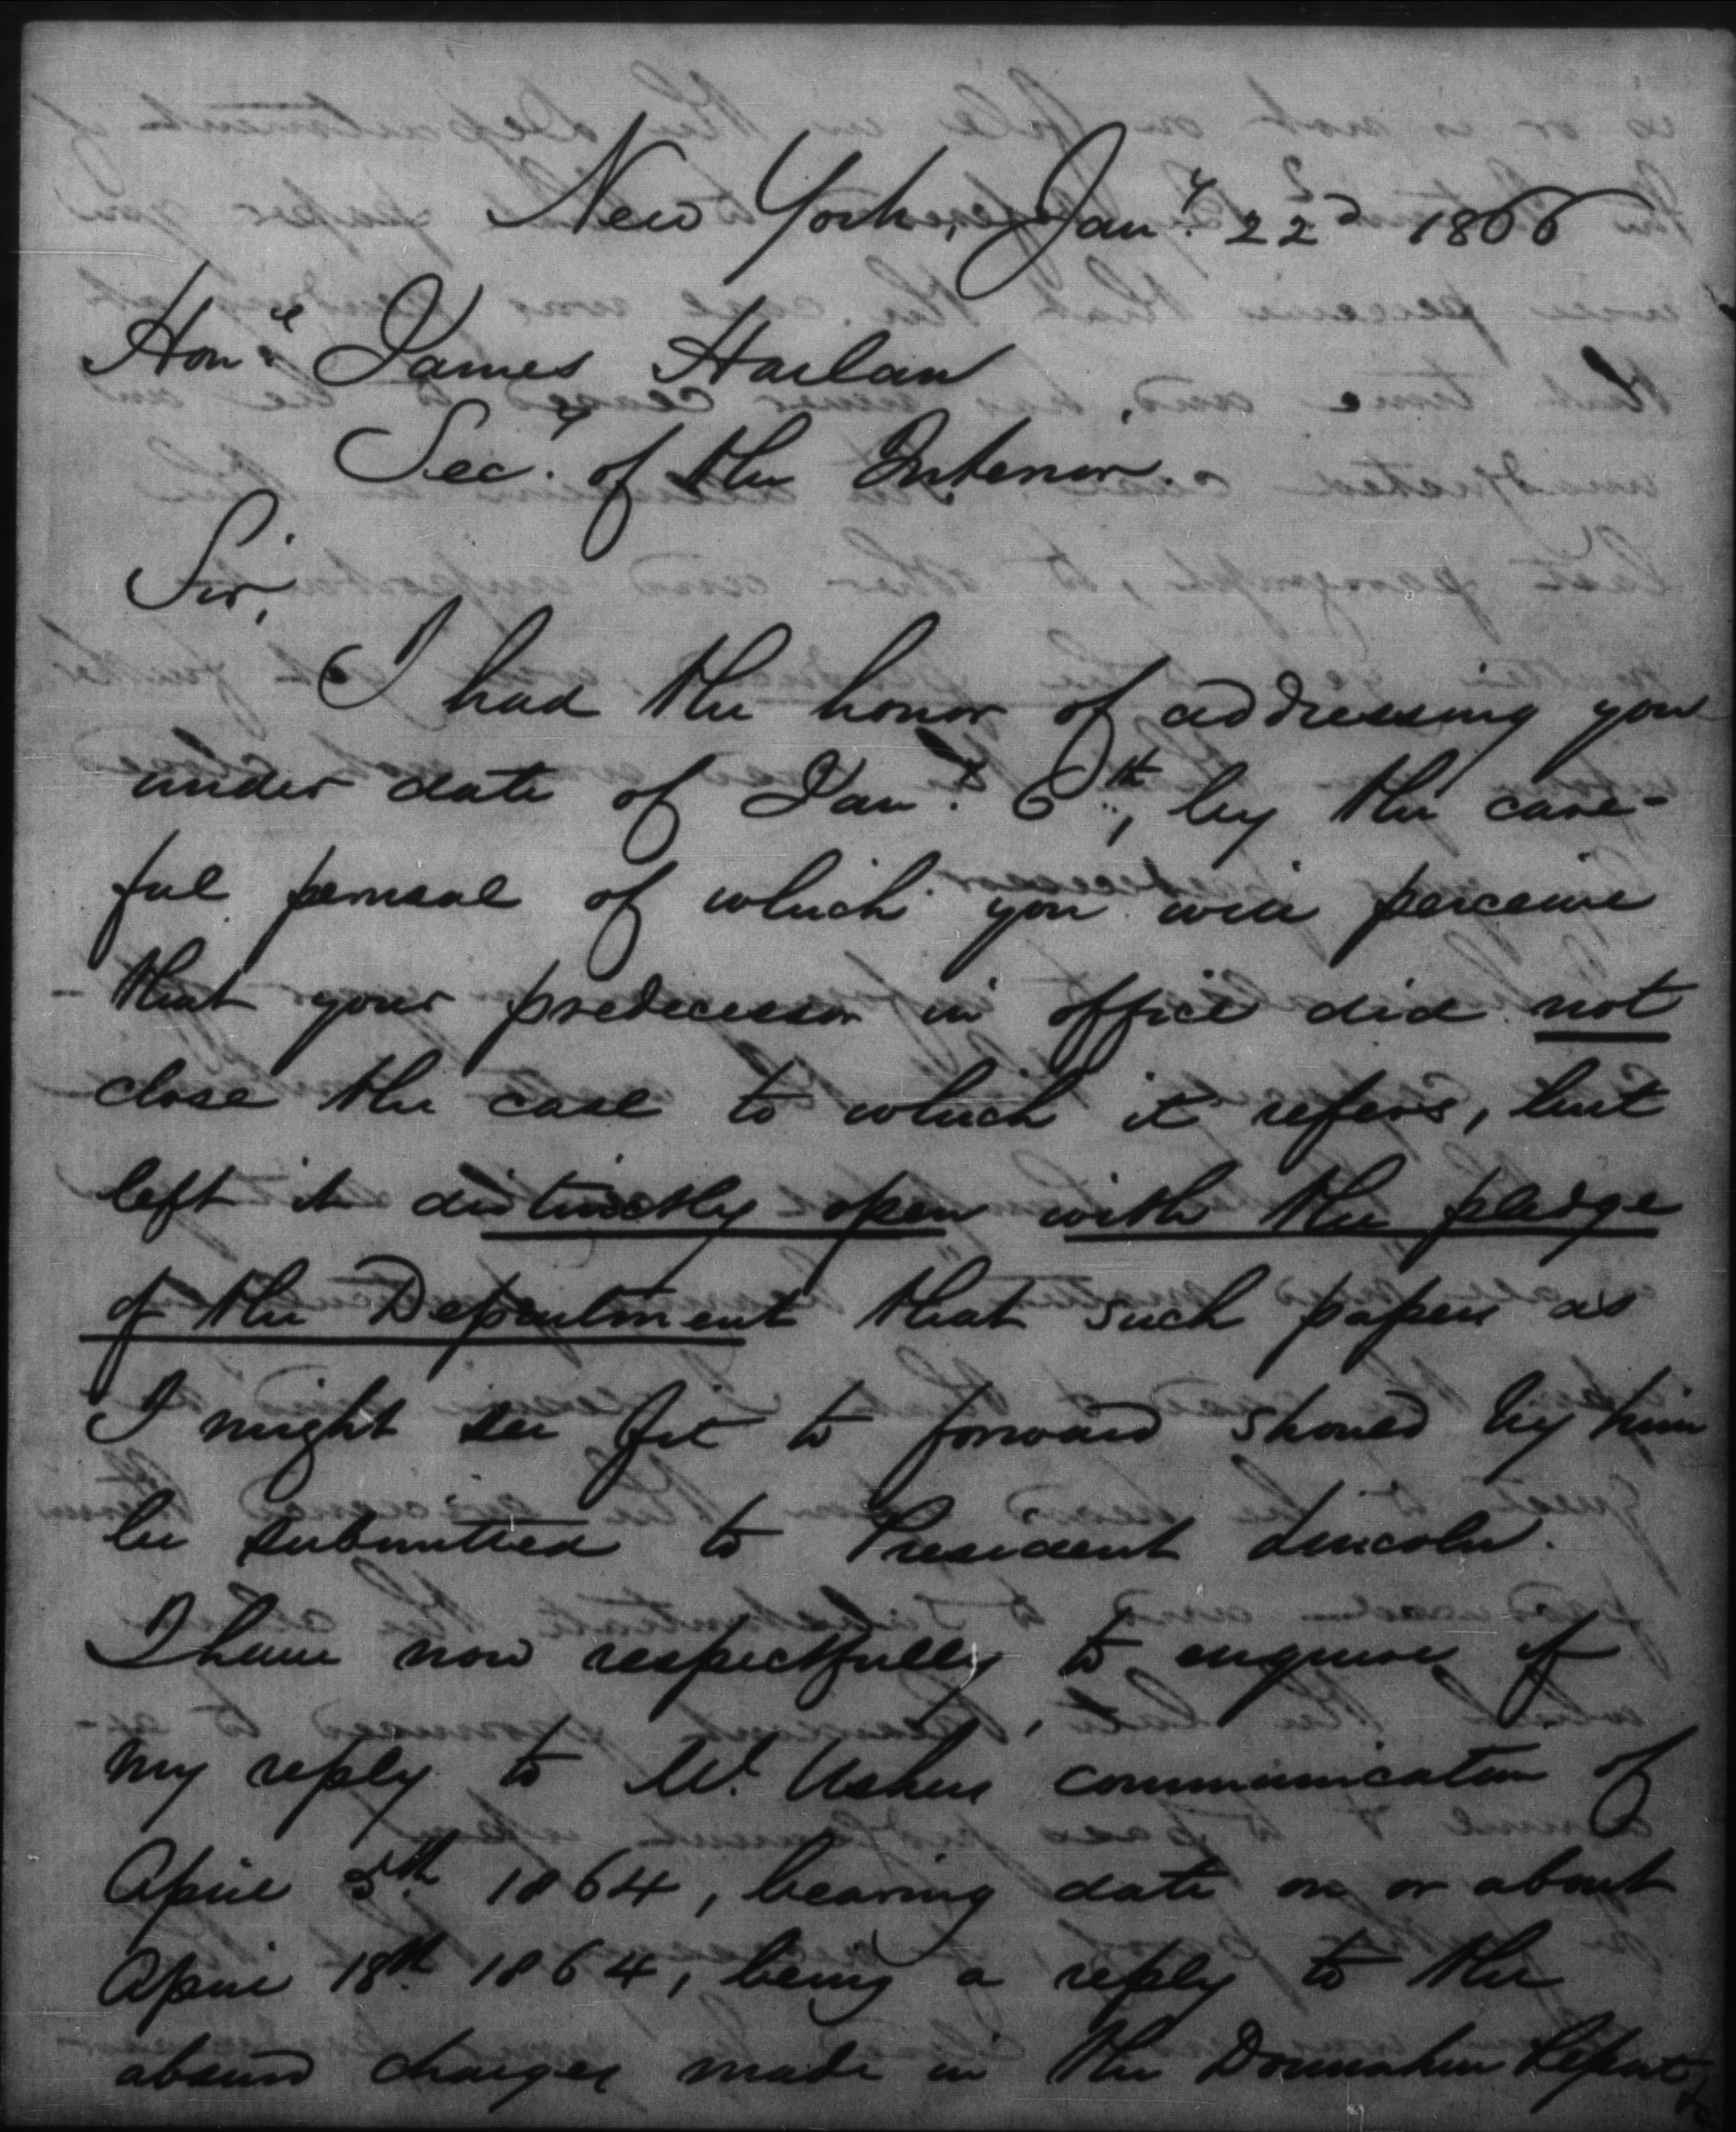 New York, Jan.y 22d 1866
Hon.e James Harlan
Sec.y of the Interior.
Sir,
I had the honor of addressing you
under date of Jan.y 6th, by the care-
ful perusal of which you will perceive
that your predecessor in office did not
close the case to which it refers, but
left it distinctly open with the pledge
of the Department that such papers as
I might see fit to forward should by him
be submitted to President Lincoln.
I have now respectfully, to enquire if
my reply to Mr. Ushers communication of
April 5th 1864, bearing date on or about
April 18th 1864, being a reply to the
absurd charges made in the Donnahue Report,